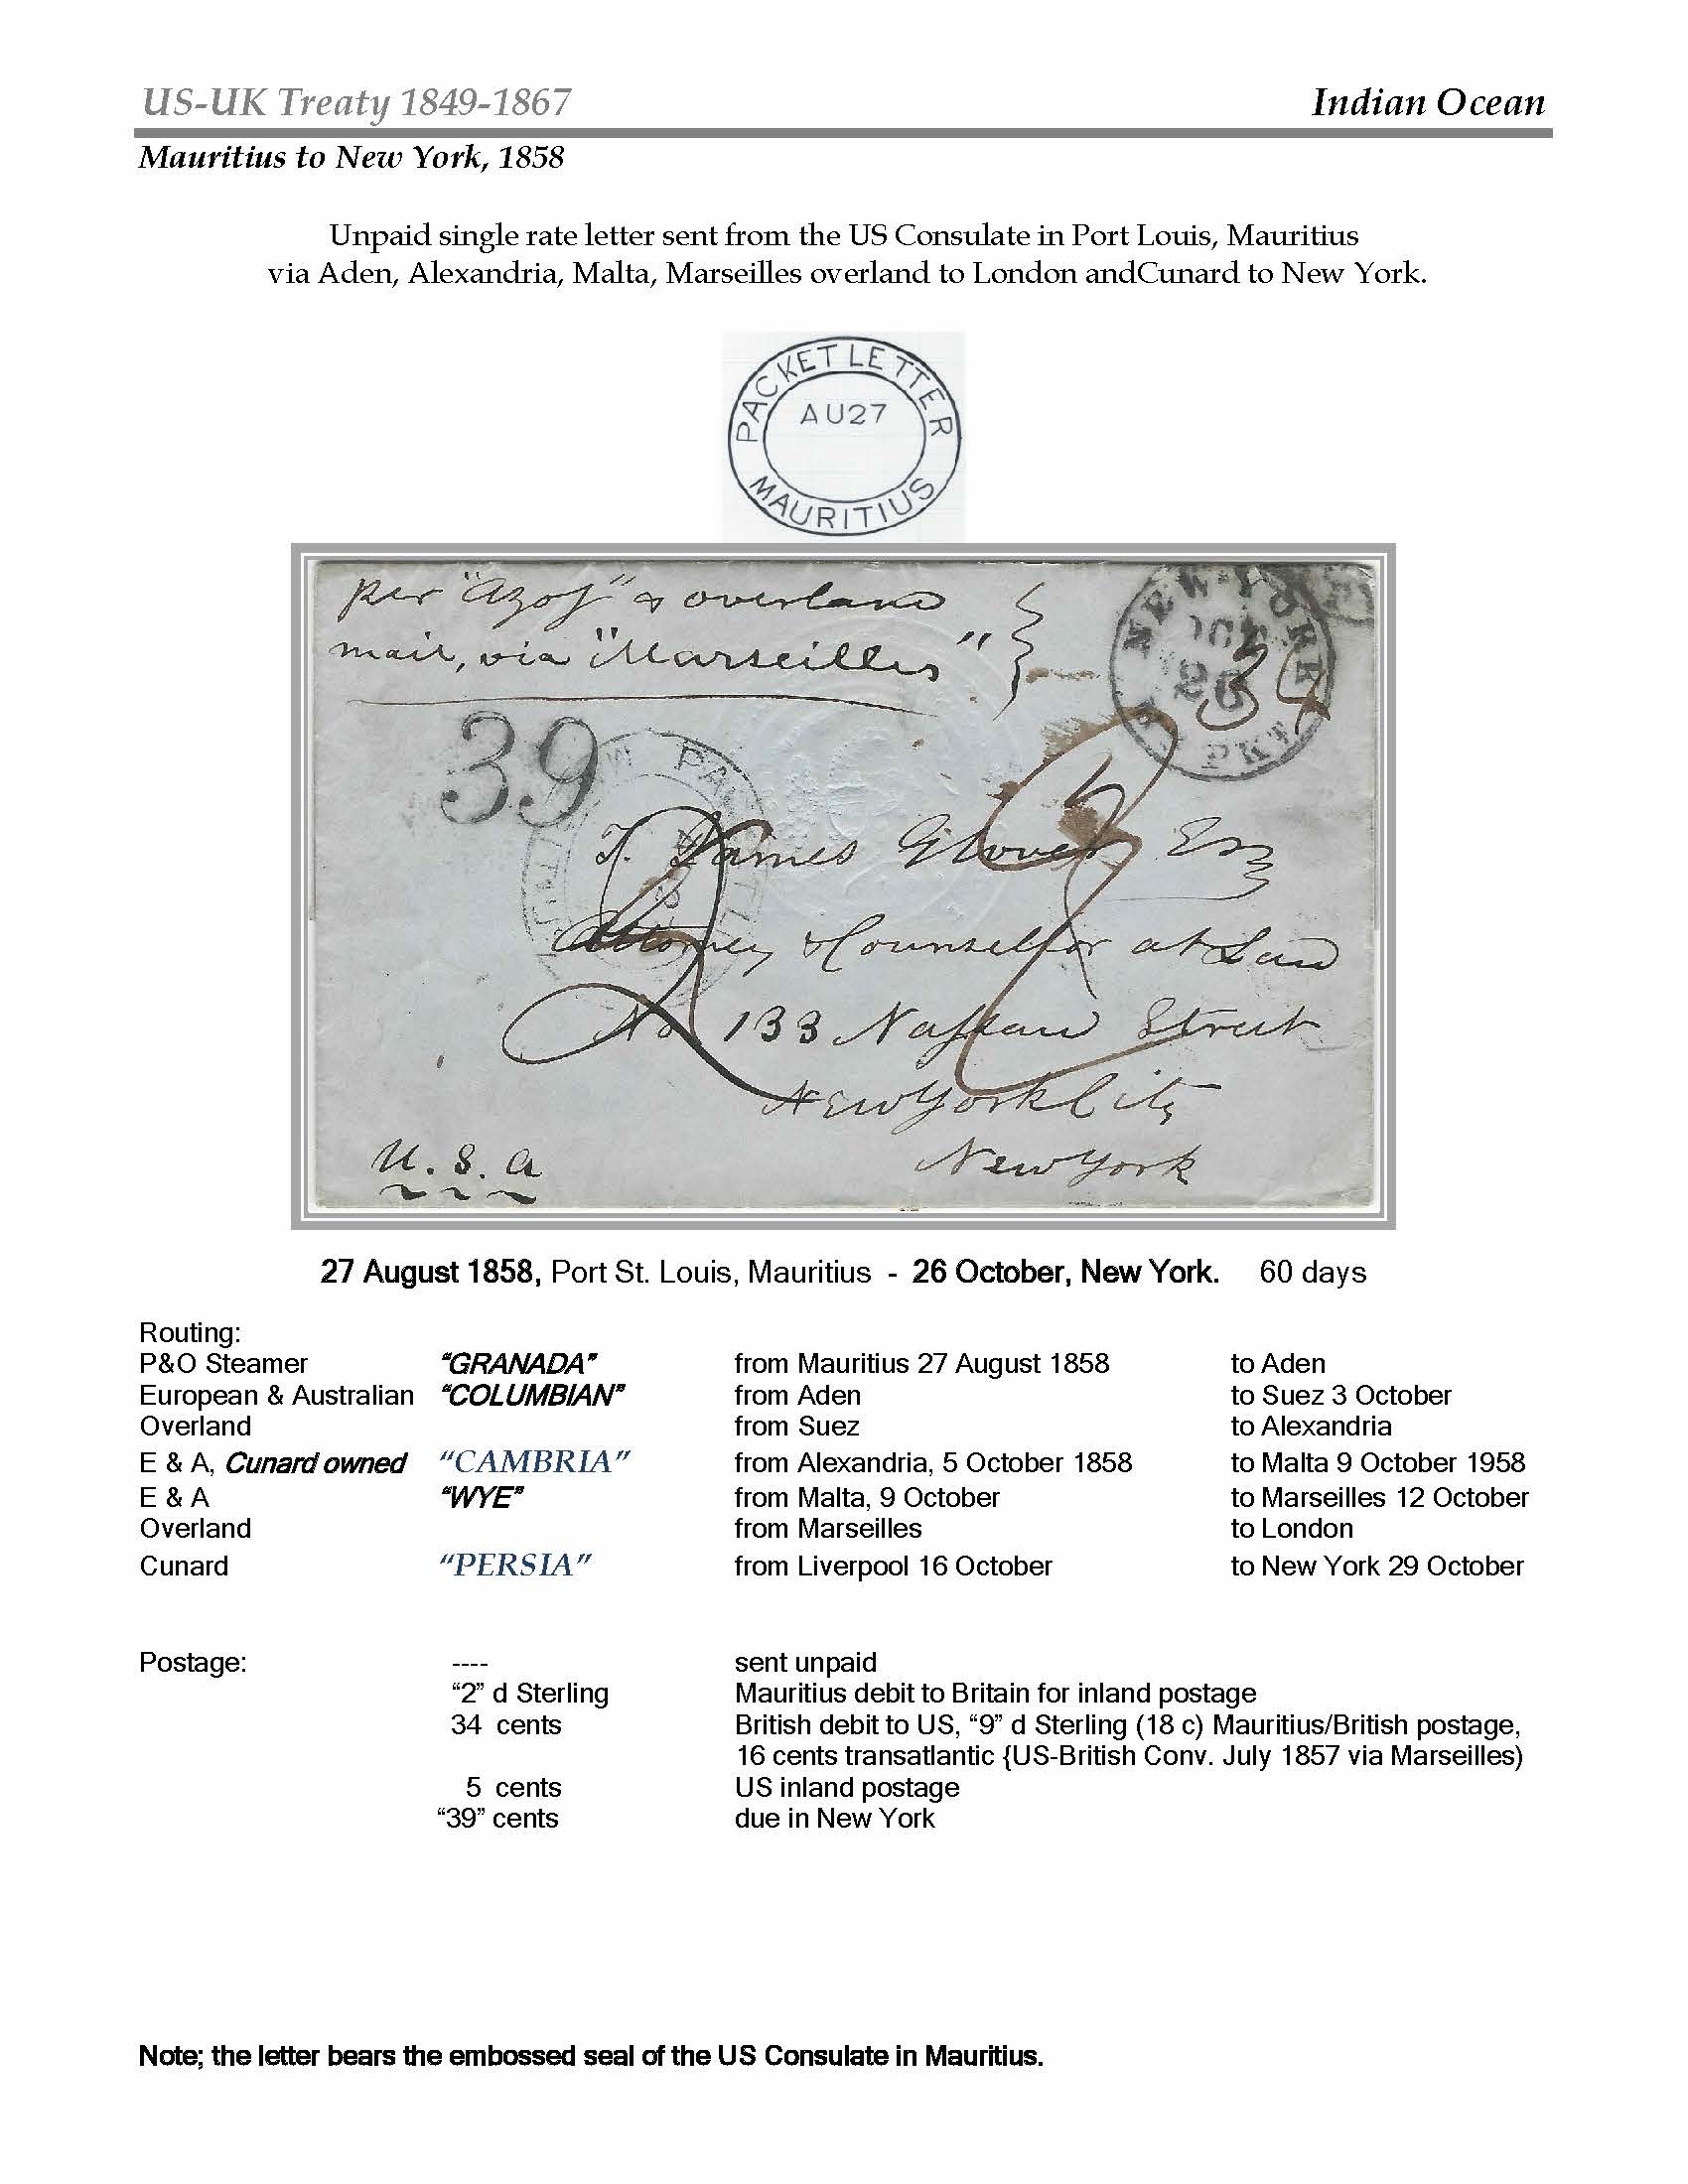 US-UK Treaty 1849-1867 Indian Ocean
Mauritius to New York, 1858
Unpaid single rate letter sent from the US Consulate in Port Louis, Mauritius
via Aden, Alexandria, Malta, Marseilles overland to London andCunard to New York.
PACKET LETTER
AU27
MAURITIUS
per "Azof" & overland
mail, via "Marseilles"
NEW YORK
OCT
26
PKT
34
39
T. James Glover Esq
Attorney & Counsellor at Law
No 133 Nassau Street
New York City
New York
U.S.A
27 August 1858, Port St. Louis, Mauritius - 26 October, New York. 60 days
Routing:
P&O Steamer "GRANADA" from Mauritius 27 August 1858 to Aden
European & Australian "COLUMBIAN" from Aden to Suez 3 October
Overland from Suez to Alexandria
E & A, Cunard owned "CAMBRIA" from Alexandria, 5 October 1858 to Malta 9 October 1958
E & A "WYE" from Malta, 9 October to Marseilles 12 October
Overland from Marseilles to London
Cunard "PERSIA" from Liverpool 16 October to New York 29 October
Postage: ---- sent unpaid
“2” d Sterling Mauritius debit to Britain for inland postage
34 cents British debit to US, “9” d Sterling (18 c) Mauritius/British postage,
16 cents transatlantic {US-British Conv. July 1857 via Marseilles)
5 cents US inland postage
“39” cents due in New York
Note; the letter bears the embossed seal of the US Consulate in Mauritius.